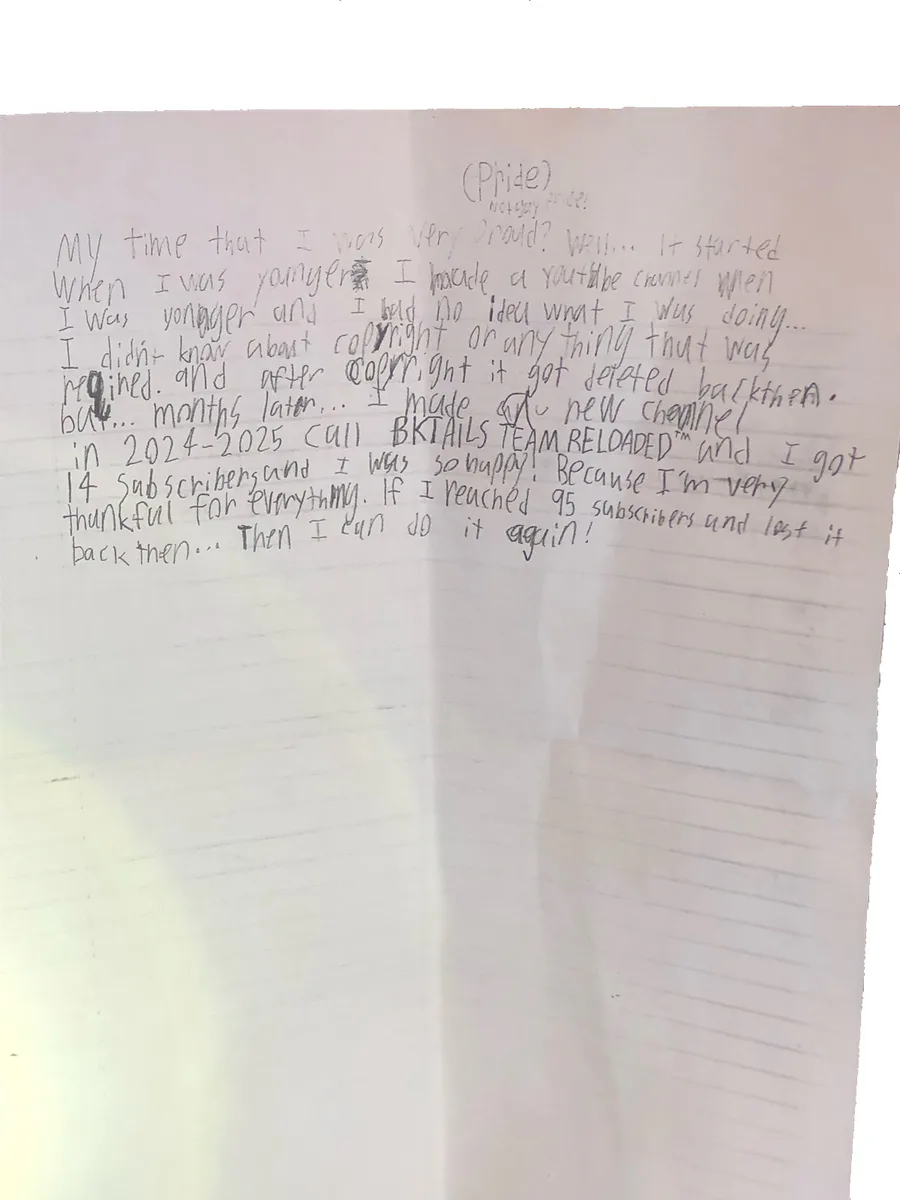 (Pride)
Not gay Pride!
My time that I was very Proud? Well... it started
when I was younger I made a youtube channel when
I was yonager and I had no idea what I was doing...
I didn't know about copyright or anything that was
reqined. and after copyrright it got deleted backthen.
but... months later... I made a new channel
in 2024-2025 call BKTAILS TEAM RELOADED™ and I got
14 subscribers and I was so happy! Because I'm very
thankful for everything. If I reached 95 subscribers and lost it
back then... Then I can do it again!